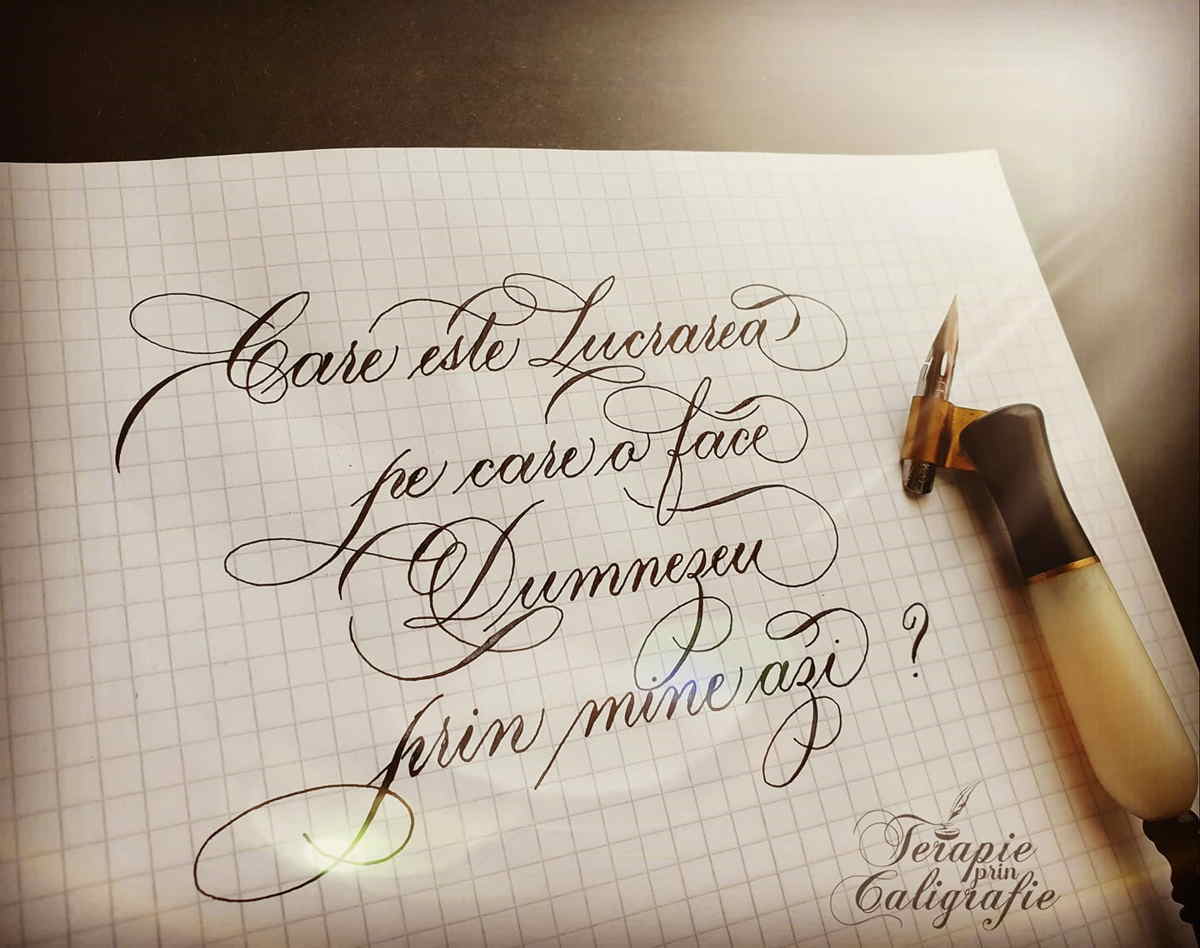 Care este Lucrarea
pe care o face
Dumnezeu
prin mine azi ?
Terapie
prin
Caligrafie